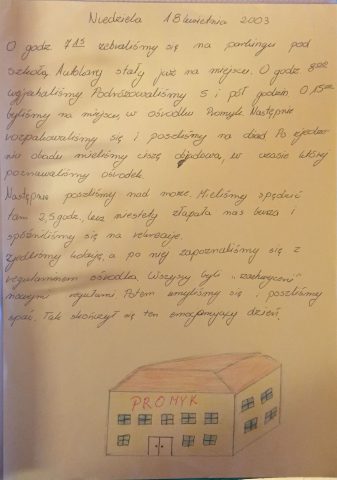 Niedziela 18 kwietnia 2003
O godz. 7 45 zebraliśmy się na parkingu pod
szkołą. Autokary stały już na miejscu. O godz. 8
wyjechaliśmy. Podróżowaliśmy 5 i pół godzin. O 15
byliśmy na miejscu, w ośrodku Promyk. Następnie
rozpakowaliśmy się i poszliśmy na obiad. Po zjedze-
niu obiadu mieliśmy ciszę obiadową, w czasie której
poznawaliśmy ośrodek.
Następnie poszliśmy nad morze. Mieliśmy spędzić
tam 2,5 godz., lecz niestety złapała nas burza i
spóźniliśmy się na
Zjedliśmy kolację, a po niej zapoznaliśmy się z
regulaminem ośrodka. Wszyscy byli „zachwyceni"
nowymi regułami. Potem umyliśmy się i poszliśmy
spać. Tak skończył się ten emocjonujący dzień.
PROMYK